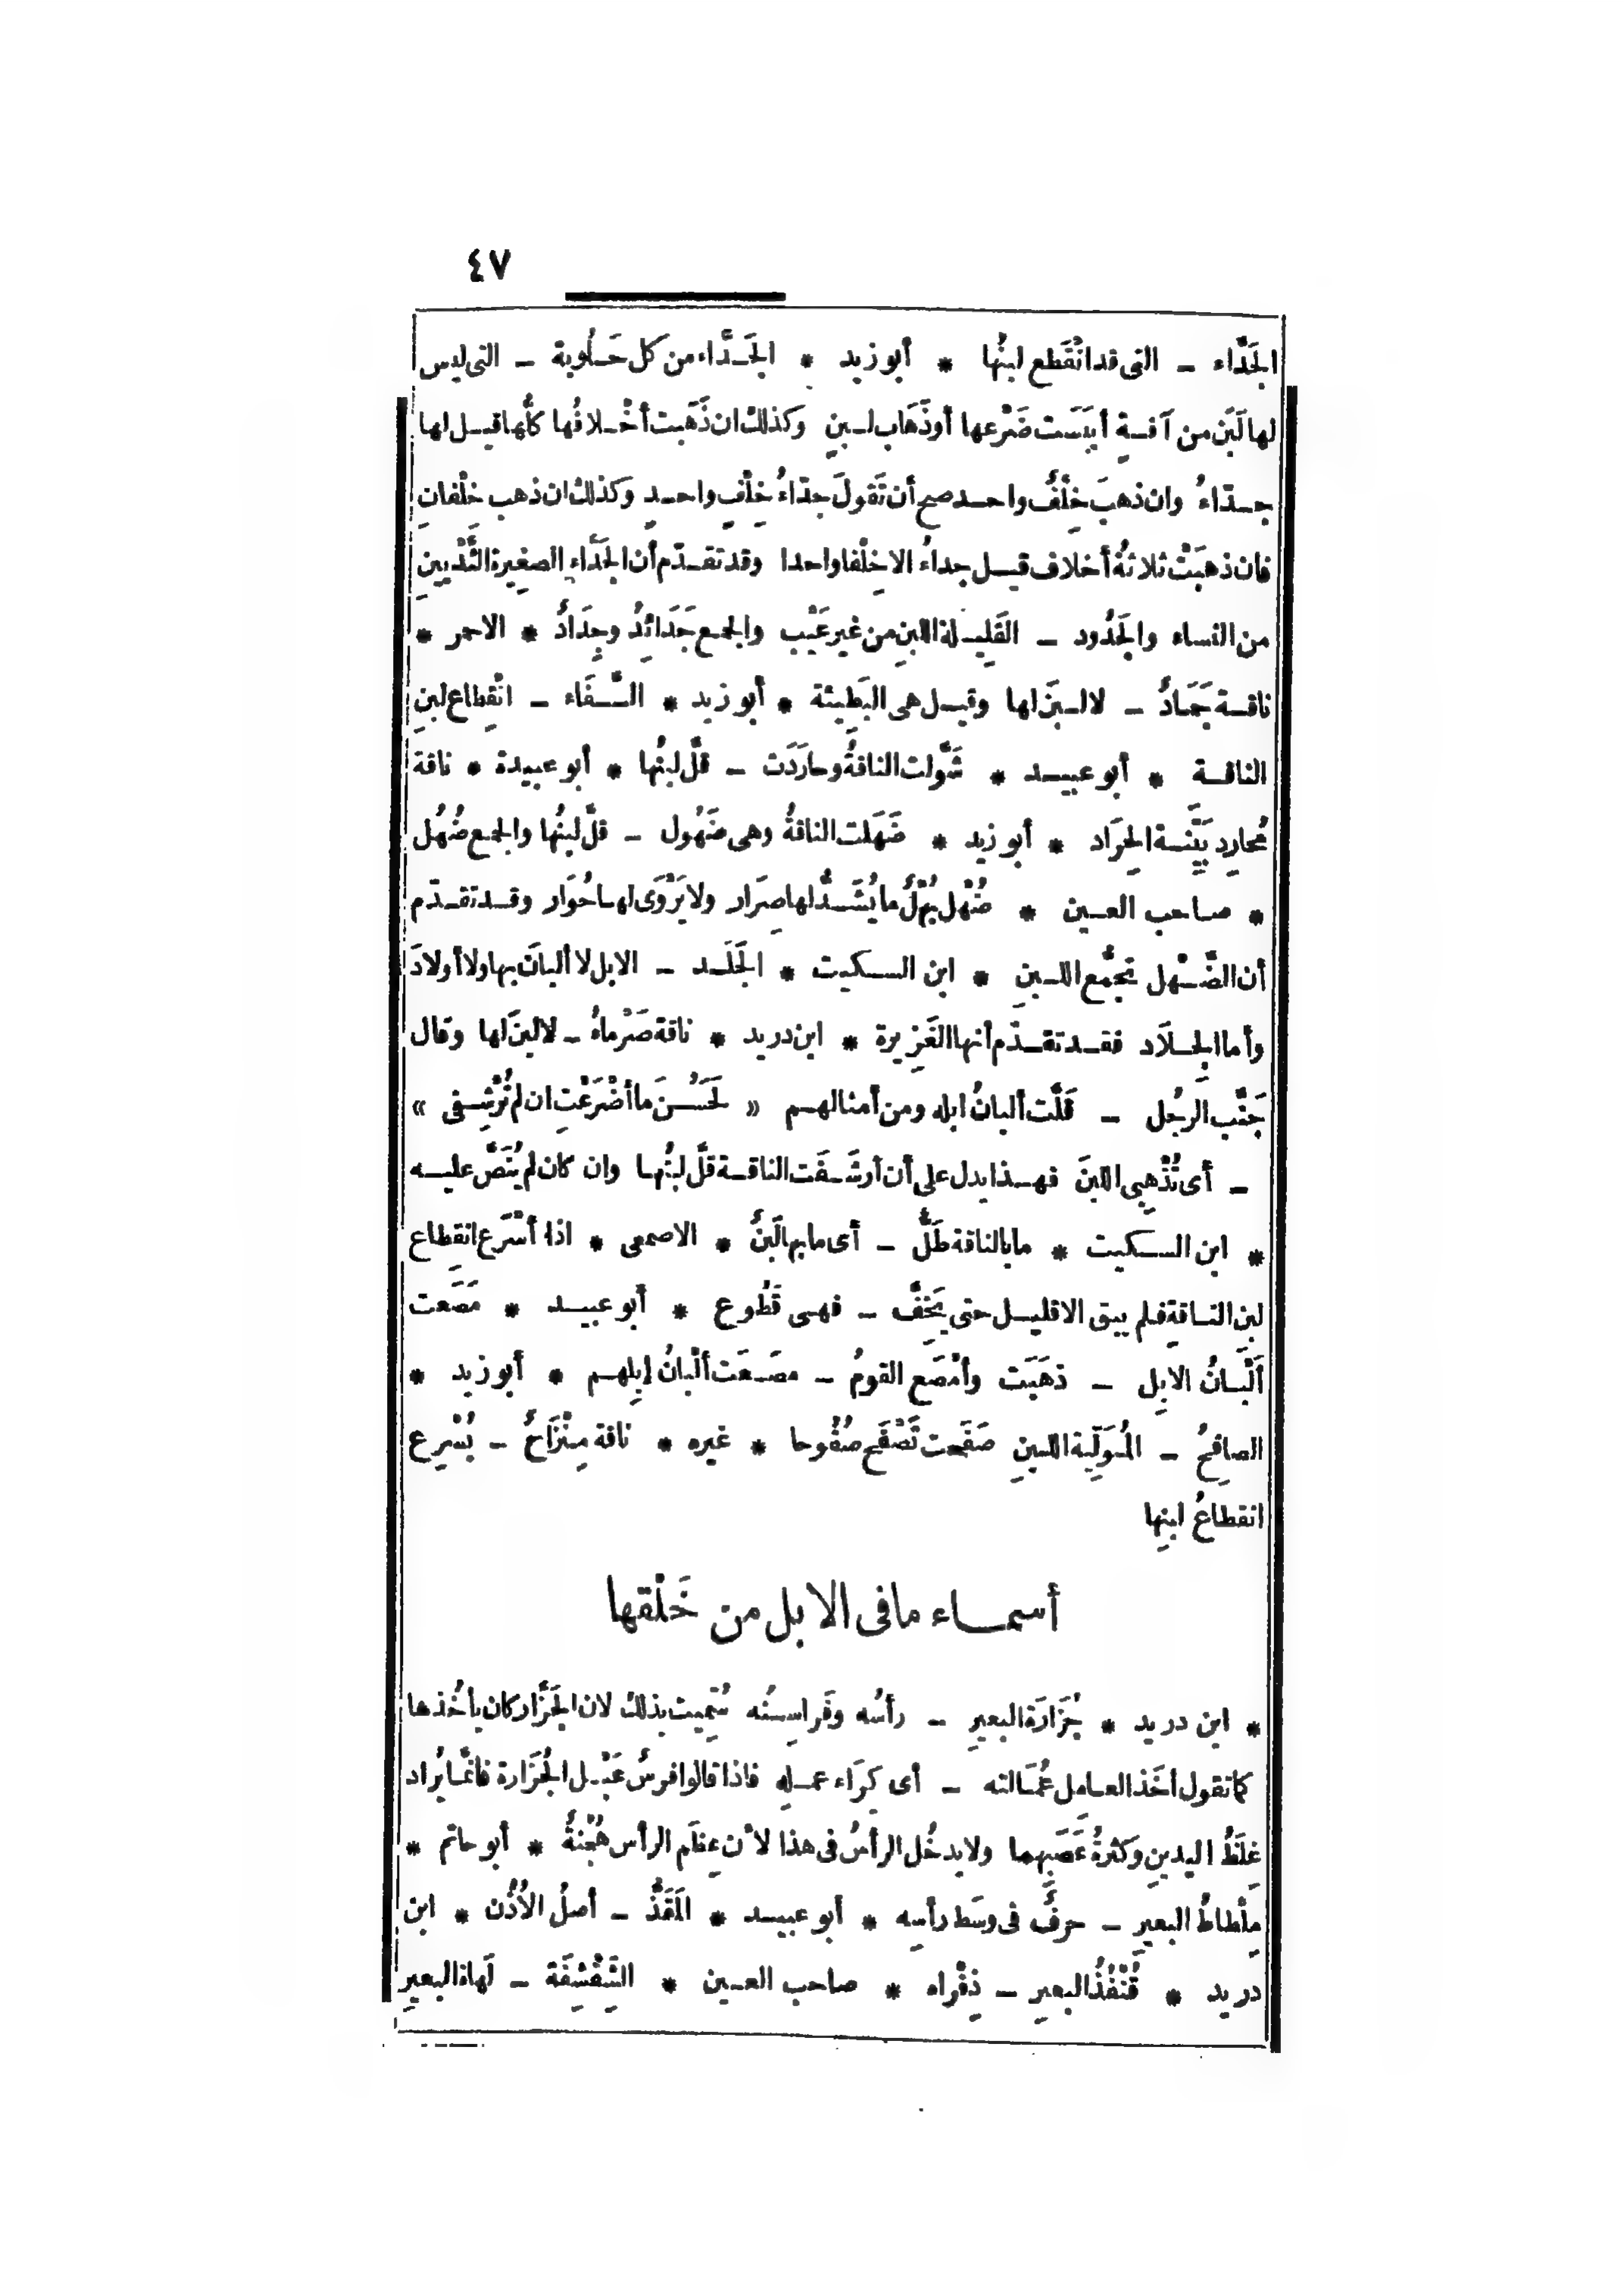 ٤٧
الجَدَّاء ــ التى قد انْقَطع لبنُها * أبو زيد * الجَدَّاء من كل حَلُوبة ــ التى ليس
لها لَبَن من آفةٍ أيبَسَت ضَرْعها أو ذَهَاب لبنٍ وكذلك ان ذَهَبت أخْلافُها كلُّها قيل لها
جدّاءُ وان ذهبَ خِلْفٌ واحد صح أن تَقولَ جدّاءُ خِلْفٍ واحدٍ وكذلك ان ذهب خلْفانِ
فان ذهبَتْ ثلاثةُ أخلاف قيل جداءُ الا خِلْفا واحدا وقد تقدّم أن الجَدَّاء الصغيرة الثَّدْيينِ
من النساء والجَدُود ــ القَلِيلة اللبنِ من غير عَيْب والجمع جَدَائدُ وجِدَادٌ * الاحمر *
ناقة جَمَادٌ ــ لا لبَن لها وقيل هى البَطِيئة * أبو زيد * السَّفَاء ــ انْقِطاع لبنِ
الناقة * أبو عبيد * شَوَّلت الناقةُ وحارَدَت ــ قلَّ لبنُها * أبو عبيدة * ناقة
مُحارِد بَيِّنة الحِرَاد * أبو زيد * ضَهَلت الناقةُ وهى ضَهُول ــ قلَّ لبنُها والجمع ضُهُل
* صاحب العين * ضُهْل بُهْلٌ ما يُشَدُّ لها صِرَار ولا يَرْوَى لها حُوَار وقد تقدّم
أن الضَّهْل تجمُّع اللبنِ * ابن السكيت * الجَلَد ــ الابل لا ألبانَ بها ولا أولادَ
وأما الجِلاَد فقد تقدّم أنها الغَزِيرة * ابن دريد * ناقة صَرْماءُ ــ لا لبنَ لها وقال
جَنَّب الرجُل ــ قَلَّت ألبانُ ابله ومن أمثالهم « لَحَسُنَ ما أضْرَعْتِ ان لم تُرْشِفى »
ــ أى تُذْهِبى اللبنَ فهذا يدل على أن أرشَفَت الناقة قلَّ لبنُها وان كان لم يُنَصَّ عليه
* ابن السكيت * ما بالناقة طَلٌّ ــ أى ما بها لَبَنٌ * الاصمعى * اذا أسْرَع انقِطاع
لبنِ الناقةِ فلم يبق الا قليل حتى يَخِفَّ ــ فهى قَطُوع * أبو عبيد * مَصَعت
ألْبانُ الابِل ــ ذهَبَت وأمْصَع القومُ ــ مصَعَت ألْبانُ إبِلهم * أبو زيد *
الصافِحُ ــ المُوَلِّية اللبنِ صَفَحت تَصْفَح صُفُوحا * غيره * ناقة مِنْزَاحٌ ــ يُسْرِع
انقطاعُ لبنِها
أسماء ما فى الابل من خَلْقها
* ابن دريد * جُزَارَة البعيرِ ــ رأسُه وفَراسِنُه سُمِّيت بذلك لان الجَزَّار كان يأخُذها
كما تقول أخَذ العامل عُمَالته ــ أى كِرَاء عمله فاذا قالوا فرسٌ عَبْل الجُزَارة فانَّما يُراد
غِلَظُ اليدينِ وكثرةُ عَصَبِهما ولا يدخُل الرأسُ فى هذا لأن عِظَم الرأس هُجْنةٌ * أبو حاتم *
مِلْطاطُ البعيرِ ــ حرفٌ فى وسَط رأسِه * أبو عبيد * المَقَذُّ ــ أصلُ الأُذُن * ابن
دريد * قُنْفُذُ البعيرِ ــ ذِفْراه * صاحب العين * الشِّقْشِقَة ــ لَهاة البعيرِ